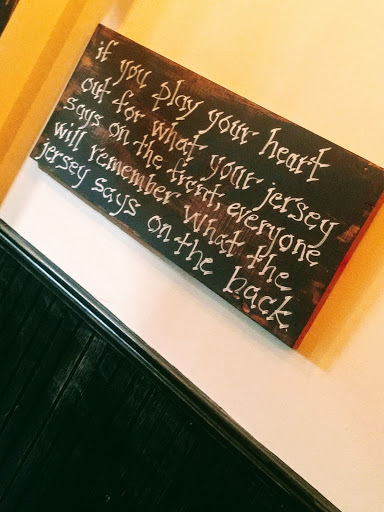 if you play your heart
out for what your jersey
says on the front, everyone
will remember what the
jersey says on the back